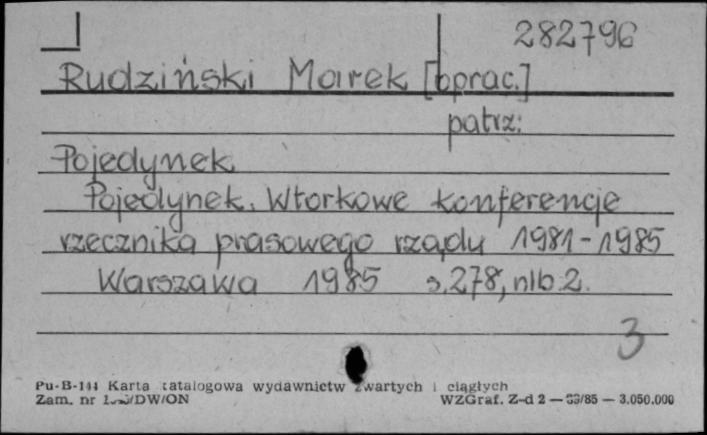 282796
Rudziński Marek [oprac.]
patrz:
Pojedynek
Pojedynek. Wtorkowe konferencje
rzecznika prasowego rządu 1981-1985
Warszawa 1985 s.278, nlb.2.
3
Pu-B-144 Karta katalogowa wydawnictw zwartych i ciągłych
Zam. nr DW/ON WZGraf. Z-d 2 — /85 — 3.050.000